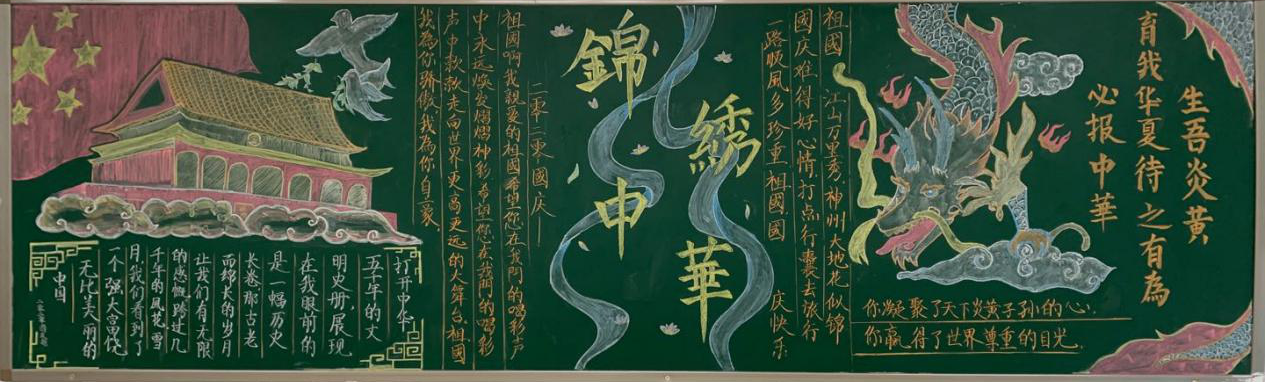 打开中华
五千年的文
明史册,展现
在我眼前的
是一幅历史
长卷,那古老
而绵长的岁月
让我们有无限
的感慨,跨过几
千年的风花雪
月,我们看到了
一个强大富饶
无比美丽的
中国
二零二零國庆——
祖國啊我親愛的祖國希望您在我們的喝彩声
中永远焕發熠熠神影希望您在我們的喝彩
声中款款走向世界更高更远的大舞台祖國
我為你骄傲,我為你自豪.
錦綉中華
祖國 江山万里秀,神州大地花似錦
國庆难得好心情,打点行囊去旅行
一路顺风多珍重 祖國國庆快乐
生吾炎黄
育我华夏待之有為
必报中華
你凝聚了天下炎黄子孙的心.
你赢得了世界尊重的目光.